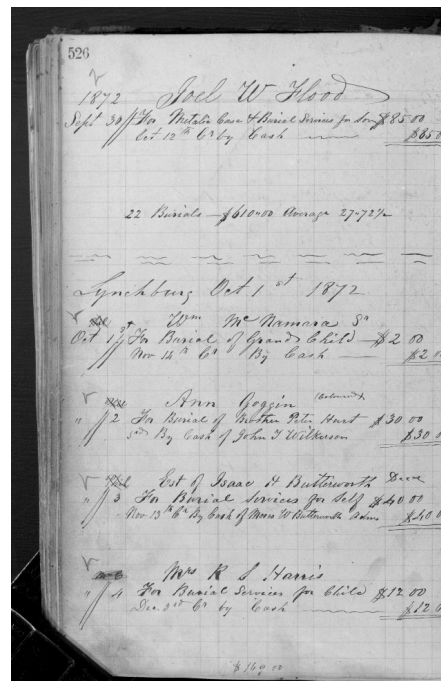 526
1872 Joel W Flood
Sept 30 For Metalic Case & Burial Services for Son $85 00
Oct. 12th Cr by Cash $85 0
22 Burials — $610"00 Average 27"72½
Lynchburg Oct 1st 1872
Wm McNamara Sr
Oct 1st For Burial of Grand Child — $2 00
Nov 14th Cr By Cash — $2 00
Ann Goggin (Colored)
" 2 For Burial of Brother Peter Hurt $30 00
3rd By Cash of John T Wilkerson $30 0
Est of Isaac H Butterworth Decd
" 3 For Burial Services for Self $40 00
Nov 13th Cr By Cash of Moses W Butterworth Admr $40 0
Mrs R S Harris
" 4 For Burial Services for Child $12 00
Dec 3rd Cr by Cash $12 0
$169.00